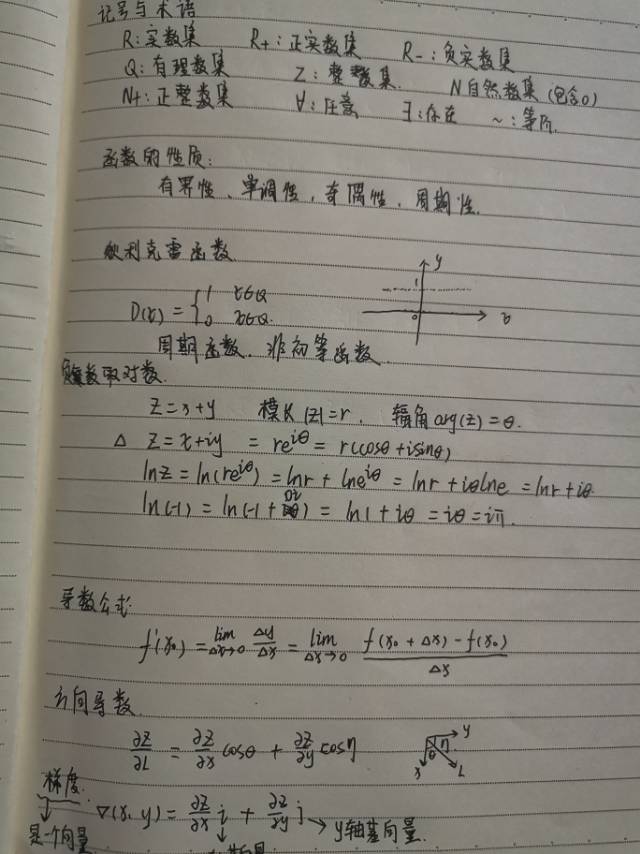 记号与术语
R:实数集 R+:正实数集 R-:负实数集
Q:有理数集 Z:整数集 N自然数集(包含0)
N+:正整数集 ∀:任意 ∃:存在 ~:等阶.
函数的性质:
有界性、单调性,奇偶性、周期性.
狄利克雷函数
y
1
D(x)={1 x∈Q
0 x x∈Q.
0
周期函数、非初等函数
负数取对数.
z=x+y 模长|z|=r. 辐角arg(z)=θ.
Δ z=x+iy = re^{iθ} = r(cosθ+isinθ)
lnz=ln(re^{iθ})=lnr+lne^{iθ}=lnr+iθlne=lnr+iθ.
ln(-1)=ln(-1+0i)=ln1+iθ=iθ=iπ.
导数公式:
f'(x₀)=lim Δx→0 Δy/Δx = lim Δx→0 (f(x₀+Δx)-f(x₀))/Δx
方向导数.
∂z/∂L = ∂z/∂x cosθ + ∂z/∂y cosη
y
θ η
x L
梯度.
∇(x,y)=∂z/∂x i + ∂z/∂y j → y轴基向量.
是一个向量